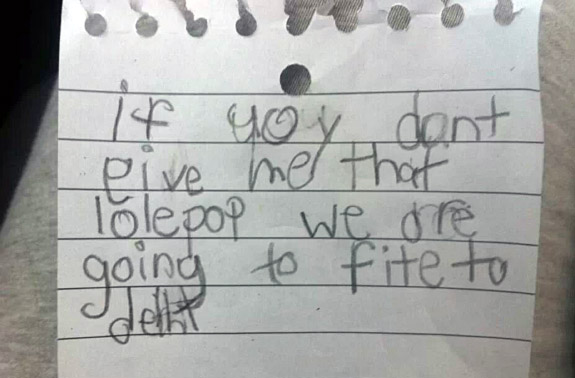 if yoy dont
give me that
lolepop we are
going to fite to
deth